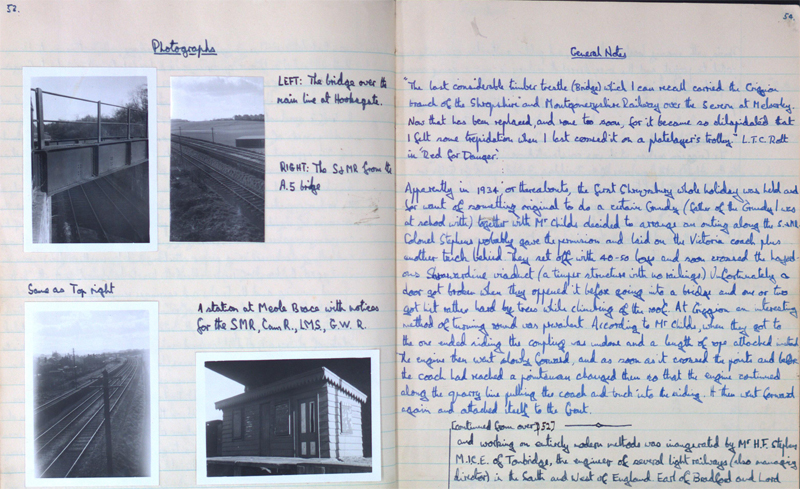 53.
Photographs
LEFT: The bridge over the
main line at Hookagate.
RIGHT: The S&MR from the
A.5 bridge
Same as Top right
A station at Meole Brace with notices
for the SMR, Cam R., LMS, G.W.R.
54.
General Notes
"The last considerable timber trestle (Bridge) which I can recall carried the Criggion
branch of the Shropshire and Montgomeryshire Railway over the Severn at Melverley.
Now that has been replaced, and none too soon, for it became so dilapidated that
I felt some trepidation when I last crossed it on a platelayer's trolley" L.T.C. Rolt
in "Red for Danger".
Apparently in 1934, or thereabouts, the first Shrewsbury whole holiday was held and
for want of something original to do a certain Grundy (father of the Grundy I was
at school with) together with Mr Childs decided to arrange an outing along the S.&M.R.
Colonel Stephens probably gave the permission and laid on the Victoria coach plus
another truck behind. They set off with 40-50 boys and soon crossed the
Shrawardine viaduct (a timber structure with no railings) Unfortunately a
door got broken when they opened it before going into a bridge and one or two
got hit rather hard by trees while climbing on the roof. At Criggion an interesting
method of turning round was prevalent According to Mr Childs, when they got to
the one ended siding the coupling was undone and a length of rope attached instead
the engine then went slowly forward, and as soon as it crossed the points and before
the coach had reached a pointsman changed them so that the engine continued
along the quarry line pulling the coach and truck into the siding. It then went forward
again and attached itself to the front.
[continued from over p52]
and working on entirely modern methods was inaugurated by Mr H.F. Stephens
M.I.C.E. of Tonbridge, the engineer of several light railways (also managing
director) in the South and West of England. Earl of Bradford and Lord